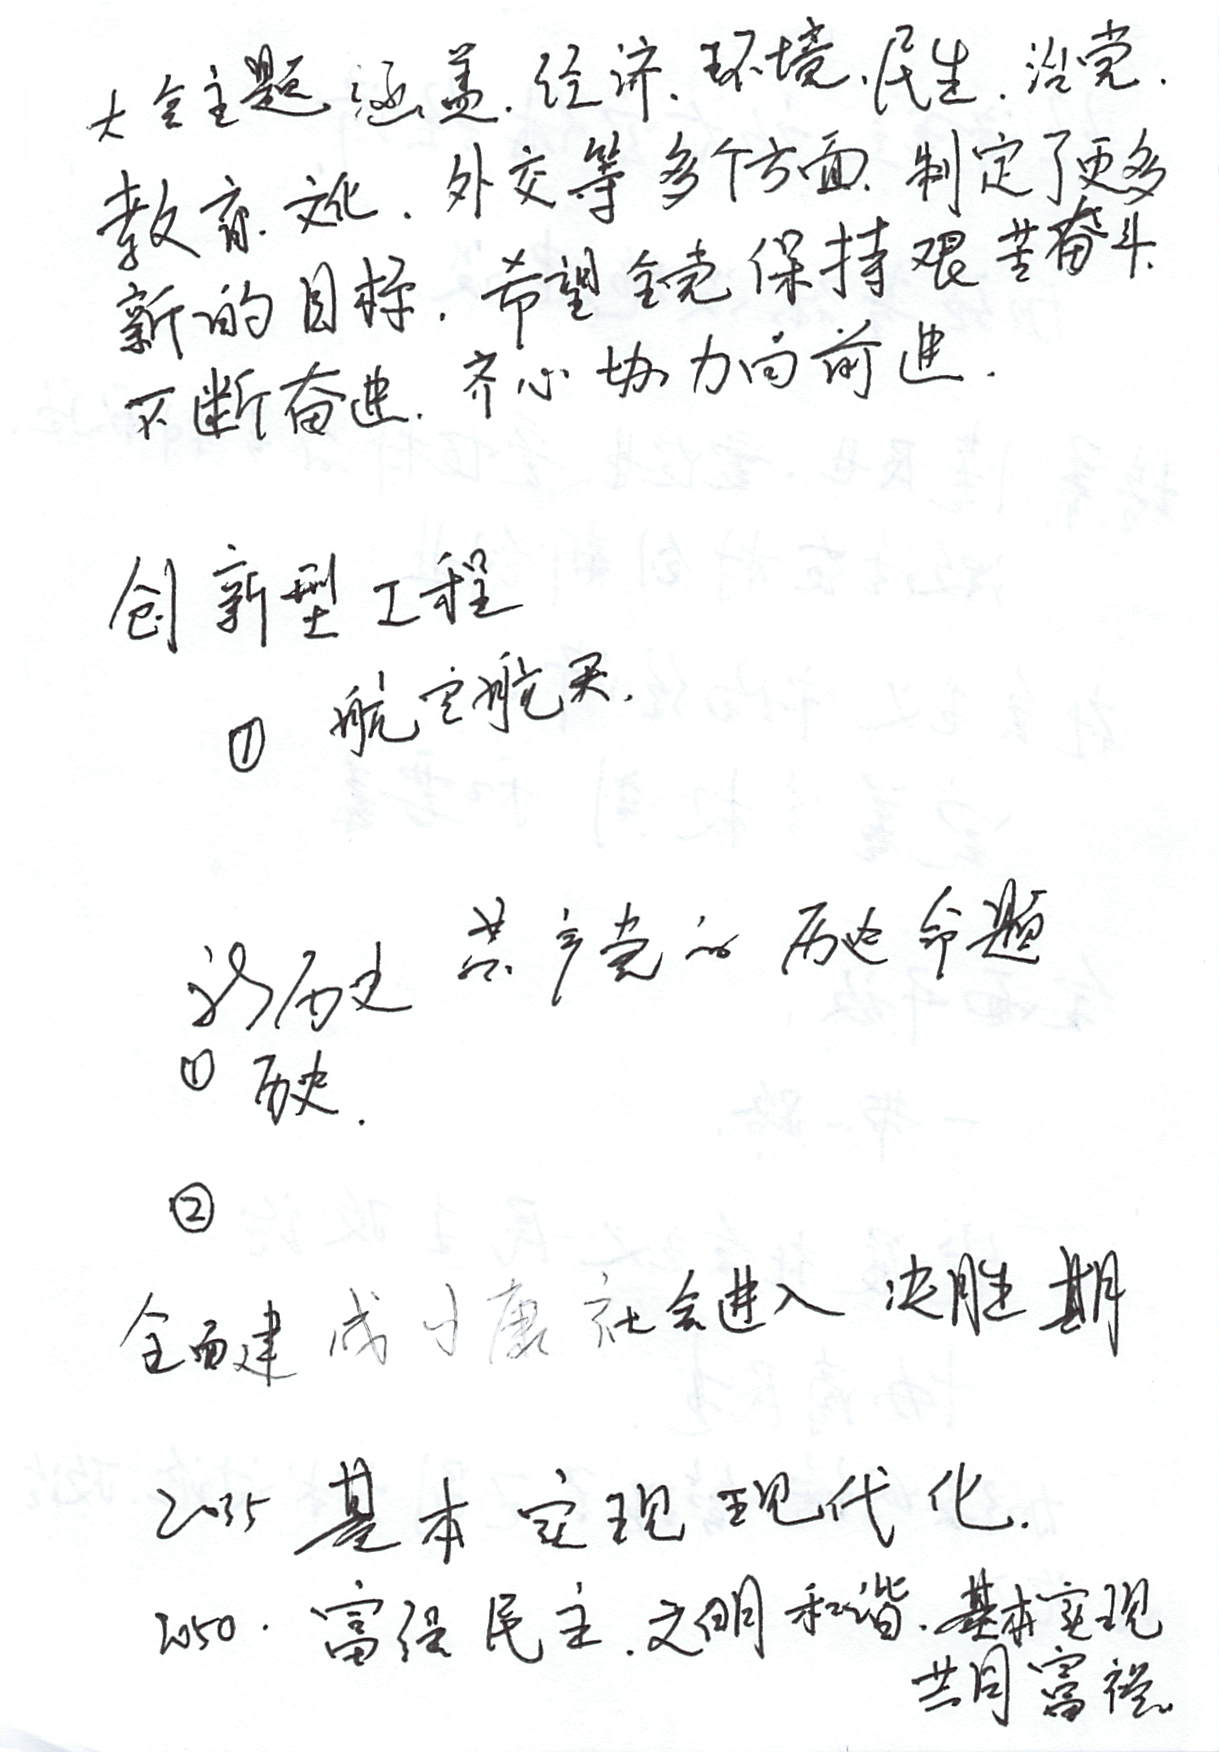 大会主题涵盖、经济、环境、民生、治党、
教育、文化、外交等多个方面、制定了更多
新的目标，希望全党保持艰苦奋斗、
不断奋进、齐心协力向前进.
创新型工程
① 航空航天.
新历史 共产党的历史命题
① 历史.
②
全面建成小康社会进入决胜期
2035 基本实现现代化.
2050. 富强民主、文明和谐、基本实现
共同富裕。